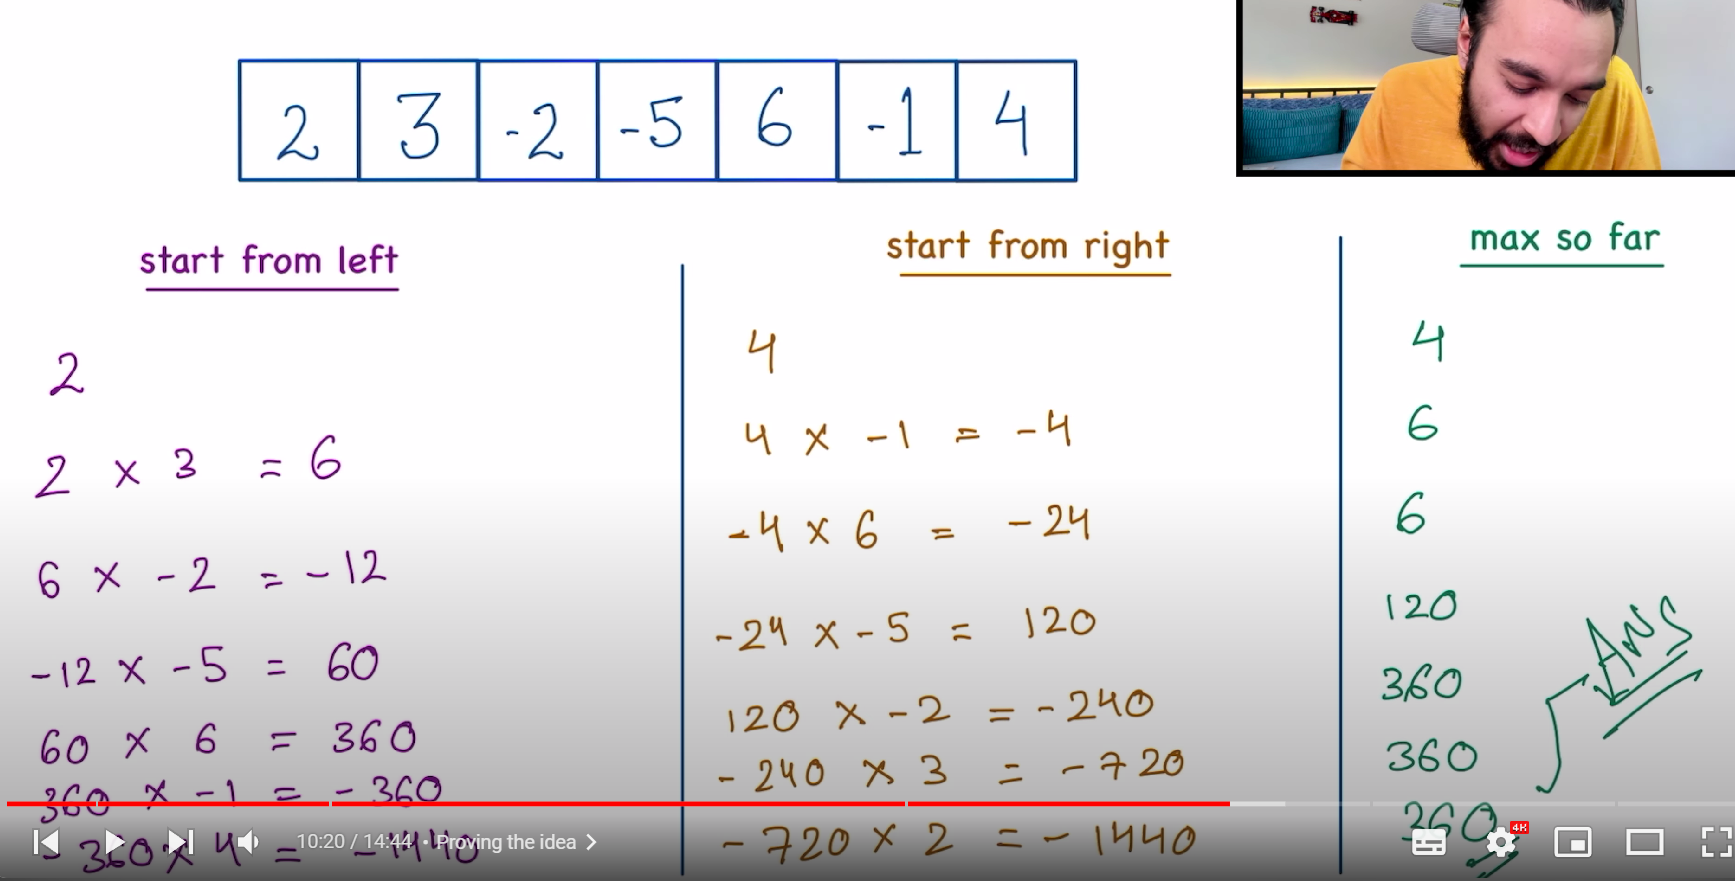 2 3 -2 -5 6 -1 4
start from left
2
2 x 3 = 6
6 x -2 = -12
-12 x -5 = 60
60 x 6 = 360
360 x -1 = -360
-360 x 4 = -1440
start from right
4
4 x -1 = -4
-4 x 6 = -24
-24 x -5 = 120
120 x -2 = -240
-240 x 3 = -720
-720 x 2 = -1440
max so far
4
6
6
120
360
360
360
Ans
10:20 / 14:44 • Proving the idea
4K